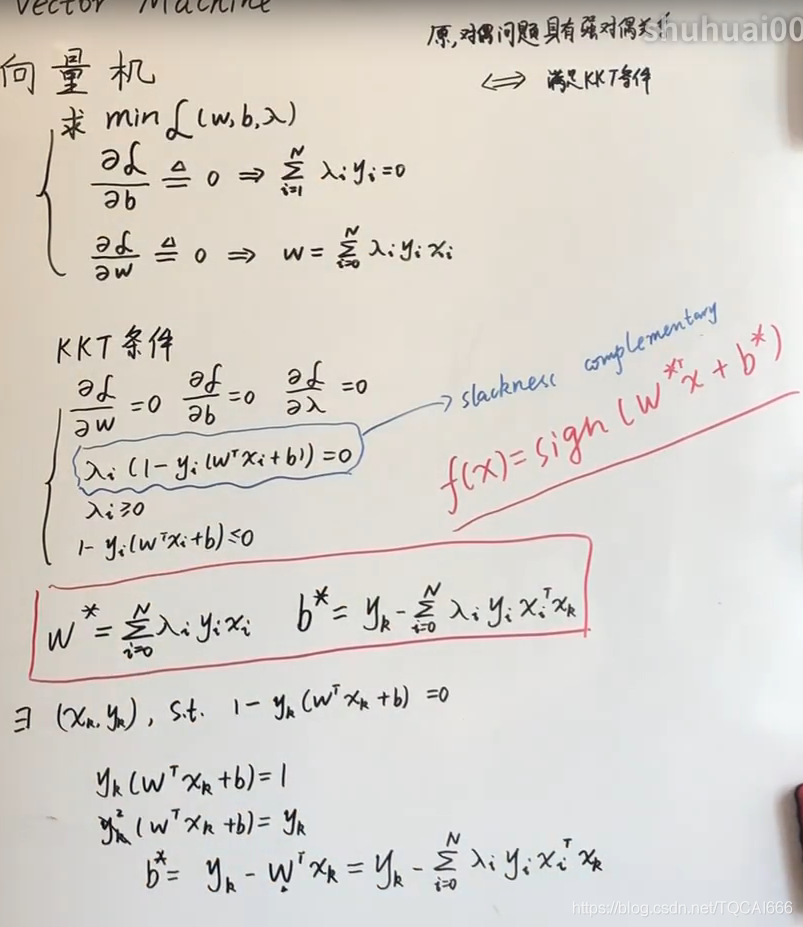 Vector Machine
原,对偶问题具有强对偶关
shuhuai00
⟺ 满足KKT条件
向量机
求 min ℒ(w,b,λ)
∂ℒ/∂b ≜ 0 ⇒ ∑_{i=1}^{N} λ_i y_i = 0
∂ℒ/∂w ≜ 0 ⇒ w = ∑_{i=0}^{N} λ_i y_i x_i
KKT条件
∂ℒ/∂w = 0 ∂ℒ/∂b = 0 ∂ℒ/∂λ = 0
λ_i (1 - y_i (w^T x_i + b)) = 0
slackness complementary
λ_i ≥ 0
1 - y_i (w^T x_i + b) ≤ 0
f(x) = sign (w^{*T} x + b^*)
w^* = ∑_{i=0}^{N} λ_i y_i x_i b^* = y_k - ∑_{i=0}^{N} λ_i y_i x_i^T x_k
∃ (x_k, y_k), s.t. 1 - y_k (w^T x_k + b) = 0
y_k (w^T x_k + b) = 1
y_k^2 (w^T x_k + b) = y_k
b^* = y_k - w^T x_k = y_k - ∑_{i=0}^{N} λ_i y_i x_i^T x_k
https://blog.csdn.net/TQCAI666